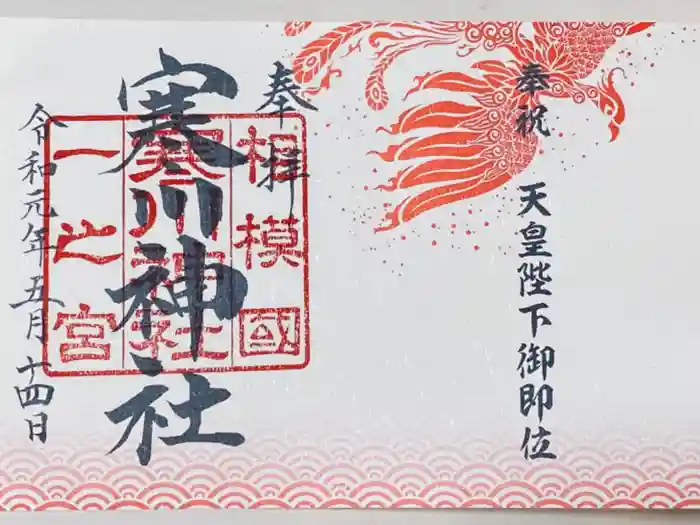 奉祝 天皇陛下御即位
奉拝
寒川神社
令和元年五月十四日
相模國
寒川神社
一之宮